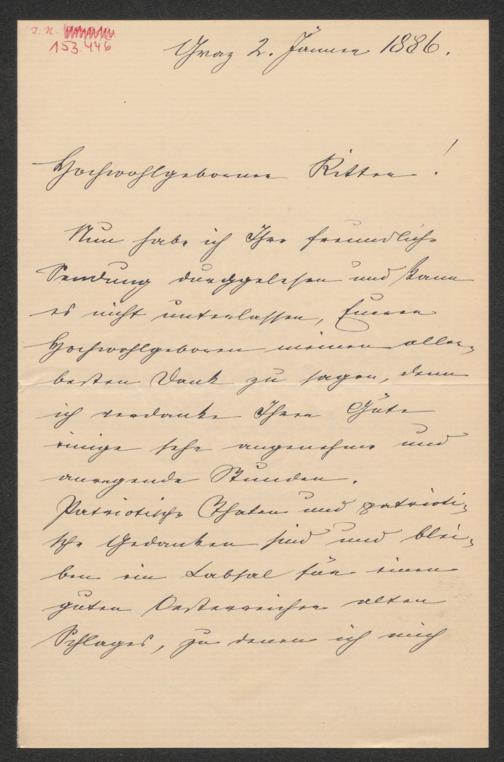 J. N.
153.446
Graz 2. Jänner 1886.
Hochwohlgeborner Ritter!
Nun habe ich Ihre freundliche
Sendung durchgelesen und kann
es nicht unterlassen, Eueren
Hochwohlgeboren meinen aller-
besten Dank zu sagen, denn
ich verdanke Ihrer Güte
einige sehr angenehme und
anregende Stunden.
Patriotische Thaten und patrioti-
sche Gedanken sind und blei-
ben ein Labsal für einen
guten Oesterreicher alten
Schlages, zu denen ich mich